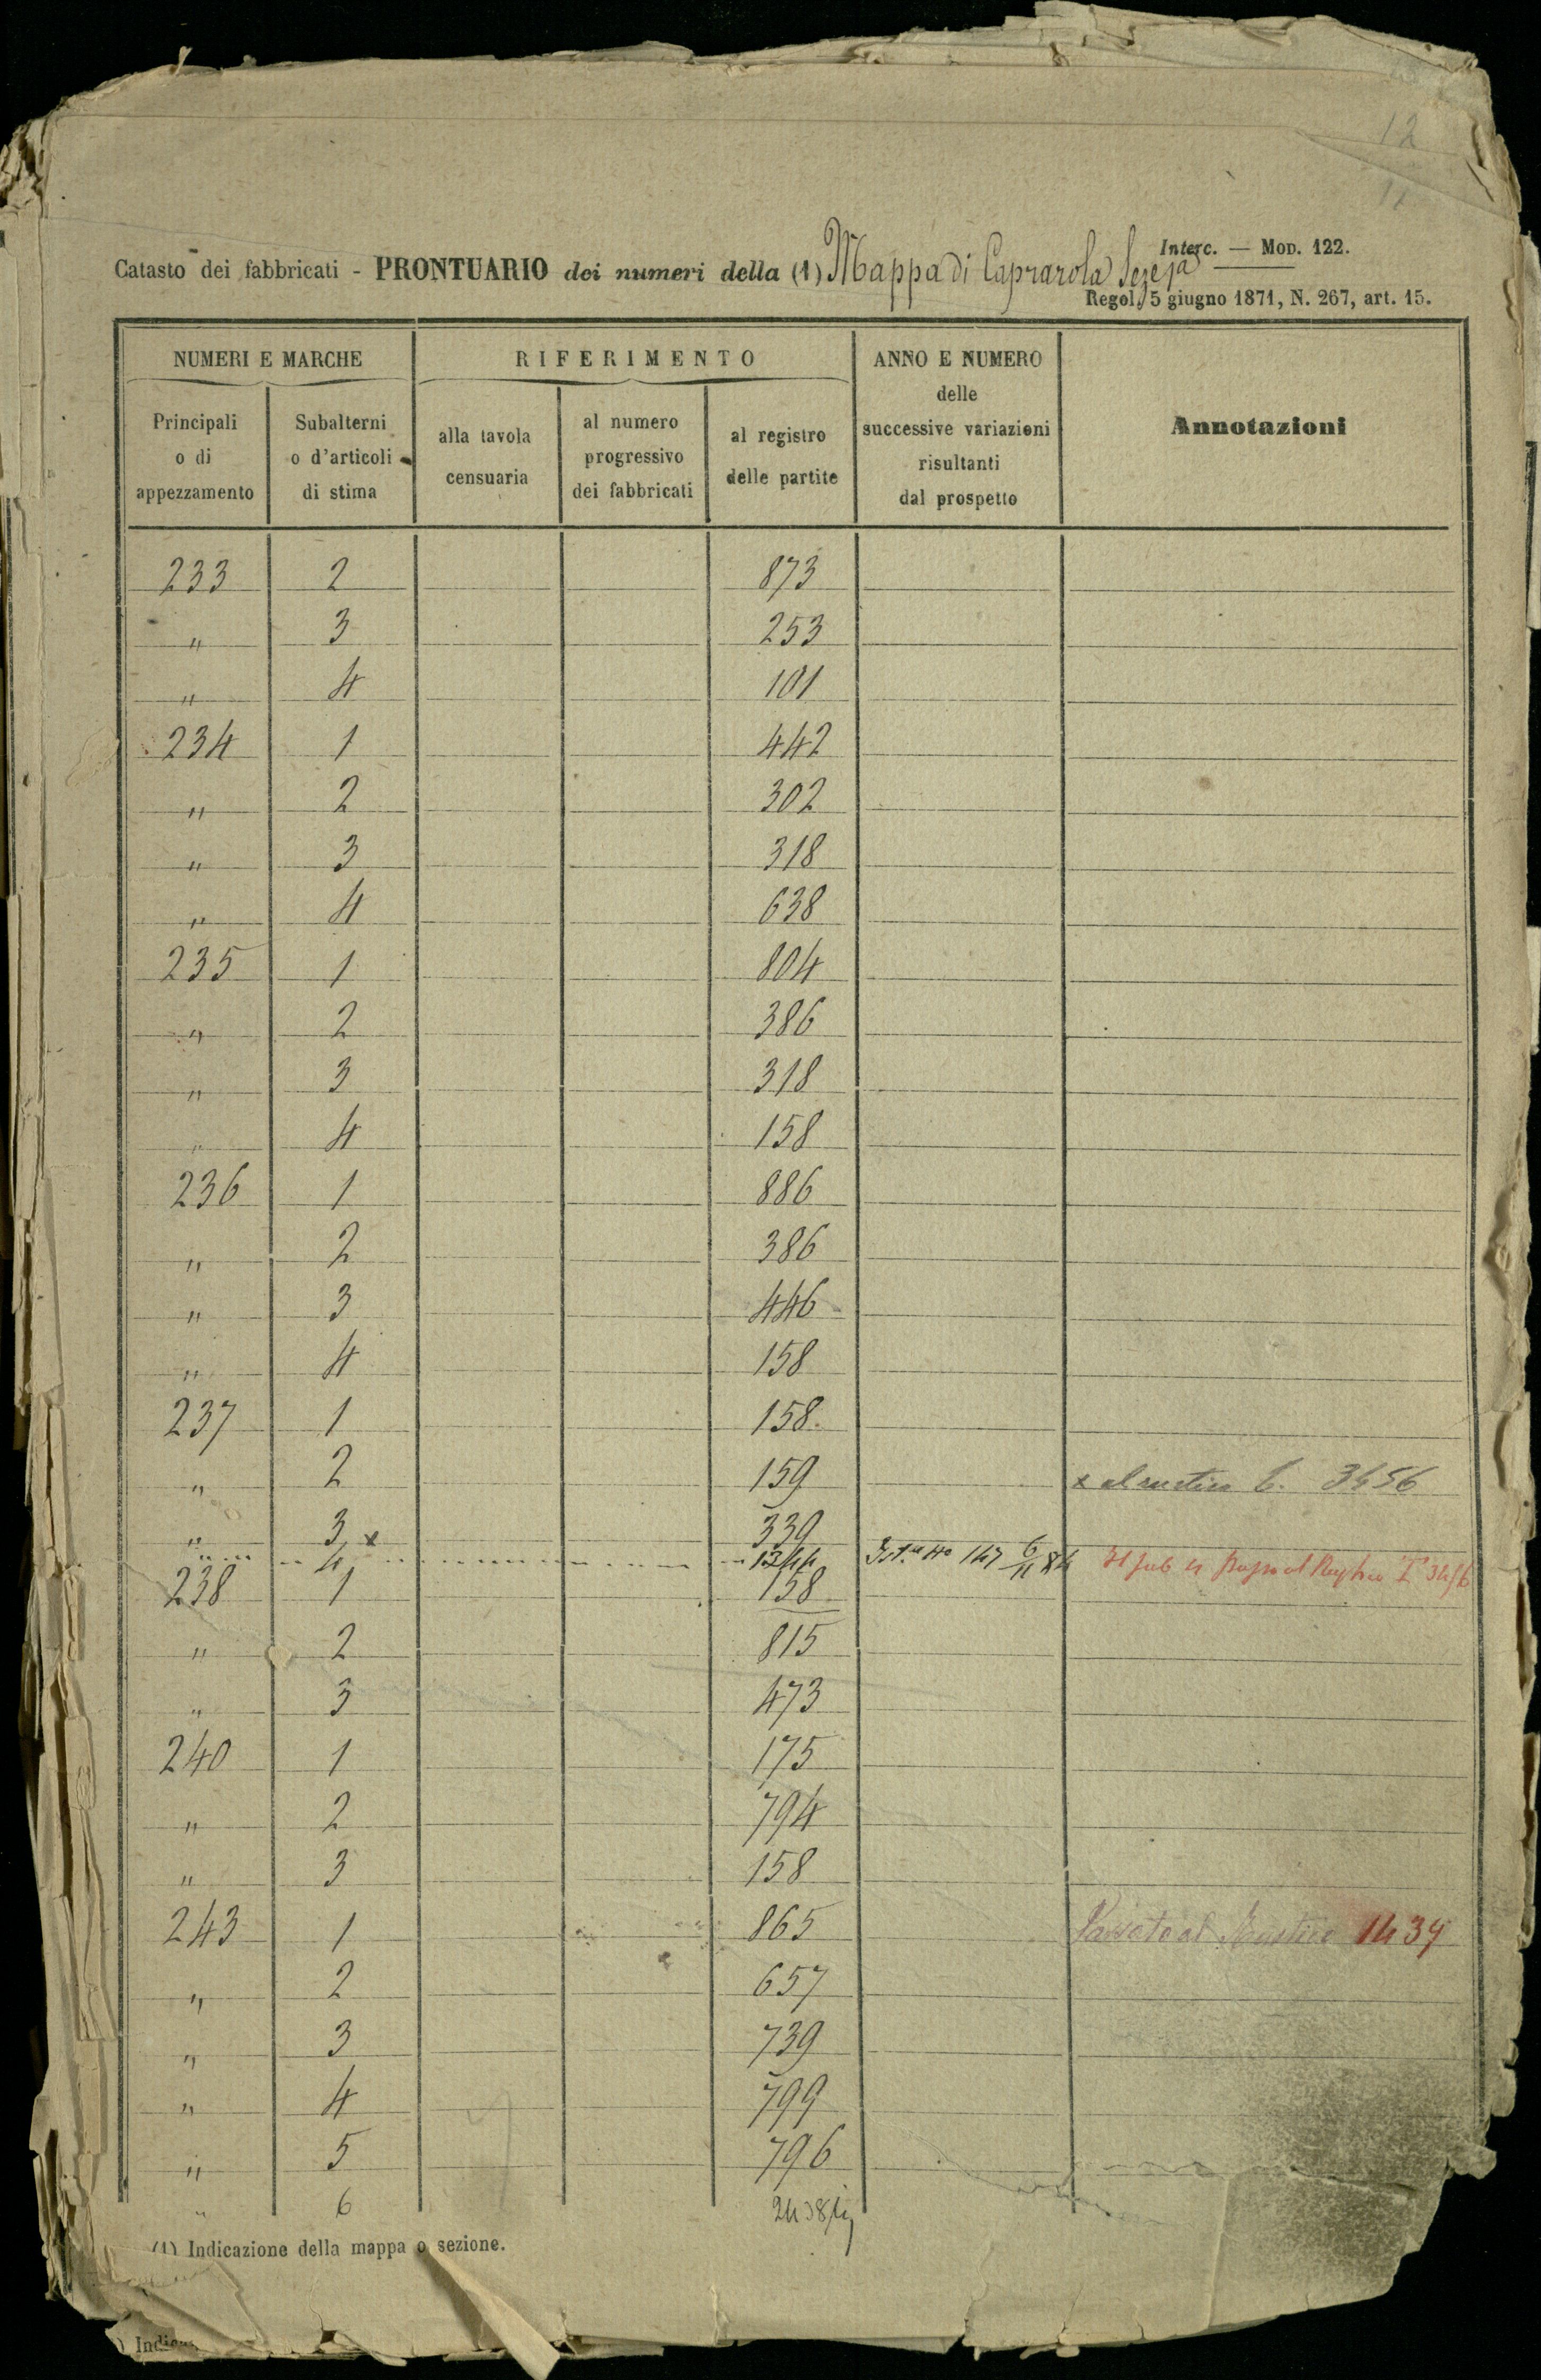 12
11
Interc. — Mod. 122.
Catasto dei fabbricati - PRONTUARIO dei numeri della (1) Mappa di Caprarola
Regol. 5 giugno 1871, N. 267, art. 15.
NUMERI E MARCHE RIFERIMENTO ANNO E NUMERO delle successive variazioni risultanti dal prospetto Annotazioni
Principali o di appezzamento Subalterni o d'articoli di stima alla tavola censuaria al numero progressivo dei fabbricati al registro delle partite
233 2 873
" 3 253
" 4 101
234 1 442
" 2 302
" 3 318
" 4 638
235 1 804
" 2 386
" 3 318
" 4 158
236 1 886
" 2 386
" 3 446
" 4 158
237 1 158
" 2 159 x al rustico 3456
" 3 x 339
" 4 1344 147 6/11 84 al
238 1 158
" 2 815
" 3 473
240 1 175
" 2 794
" 3 158
243 1 865 Passato al Rustico 1439
" 2 657
" 3 739
" 4 799
" 5 796
" 6
(1) Indicazione della mappa o sezione.